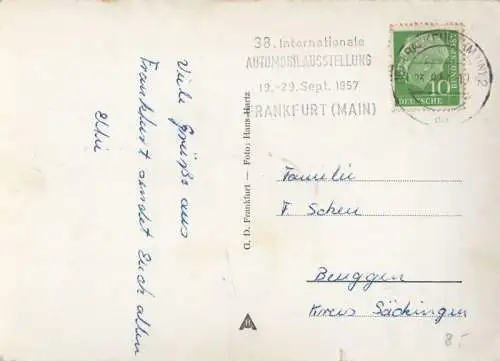 Viele Grüße aus
Frankfurt sendet Euch allen
G. D. Frankfurt — Foto: Hans Hartz
38. Internationale
AUTOMOBILAUSSTELLUNG
19.-29. Sept. 1957
FRANKFURT (MAIN)
FRANKFURT (MAIN) 2
DEUTSCHE BUNDESPOST
10
Familie
F. Scheu
Beuggen
Kreis Säckingen
8.-